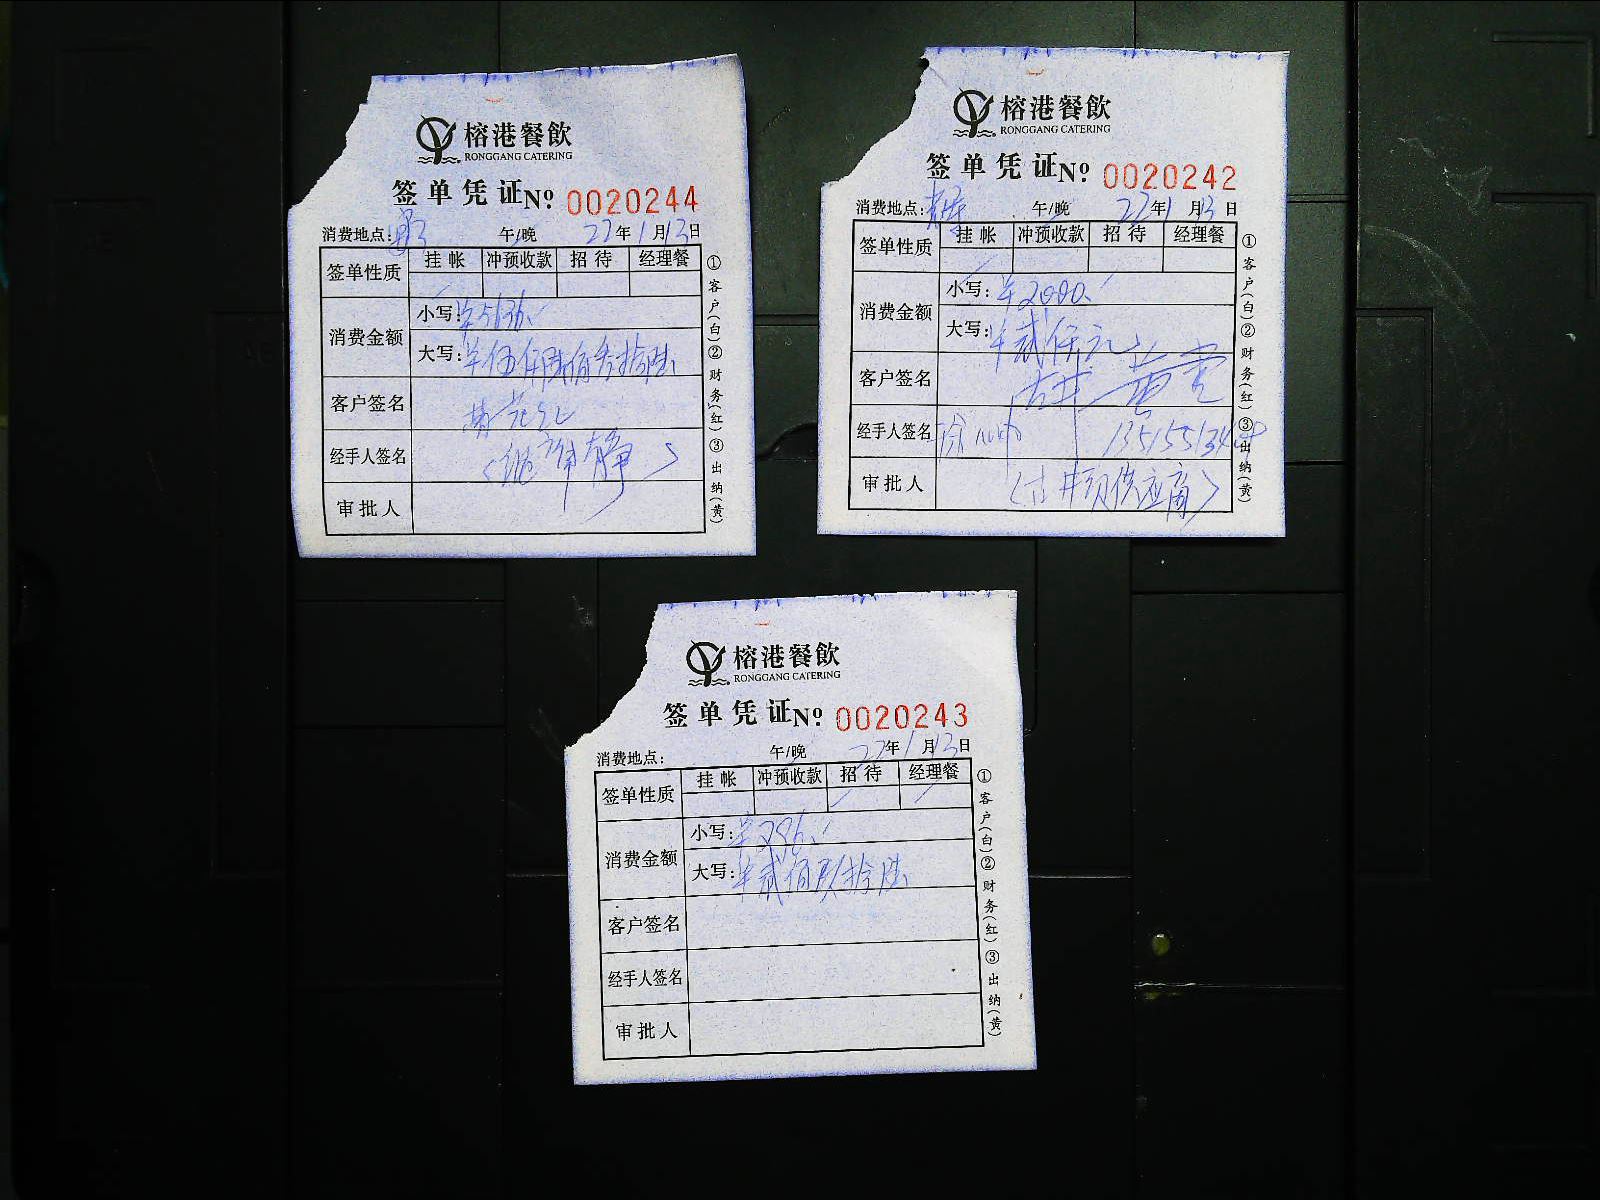 榕港餐飲
RONGGANG CATERING
签单凭证№ 0020244
消费地点: 午/晚 22年1月13日
签单性质 挂帐 冲预收款 招待 经理餐
消费金额 小写:¥5136.
大写:¥伍仟壹佰叁拾陆
客户签名
经手人签名
审批人
①客户(白)②财务(红)③出纳(黄)
榕港餐飲
RONGGANG CATERING
签单凭证№ 0020242
消费地点: 午/晚 22年1月13日
签单性质 挂帐 冲预收款 招待 经理餐
消费金额 小写:¥2000.
大写:¥贰仟元
客户签名
经手人签名
审批人 供应商
①客户(白)②财务(红)③出纳(黄)
榕港餐飲
RONGGANG CATERING
签单凭证№ 0020243
消费地点: 午/晚 22年1月13日
签单性质 挂帐 冲预收款 招待 经理餐
消费金额 小写:¥296.
大写:¥贰佰玖拾陆
客户签名
经手人签名
审批人
①客户(白)②财务(红)③出纳(黄)